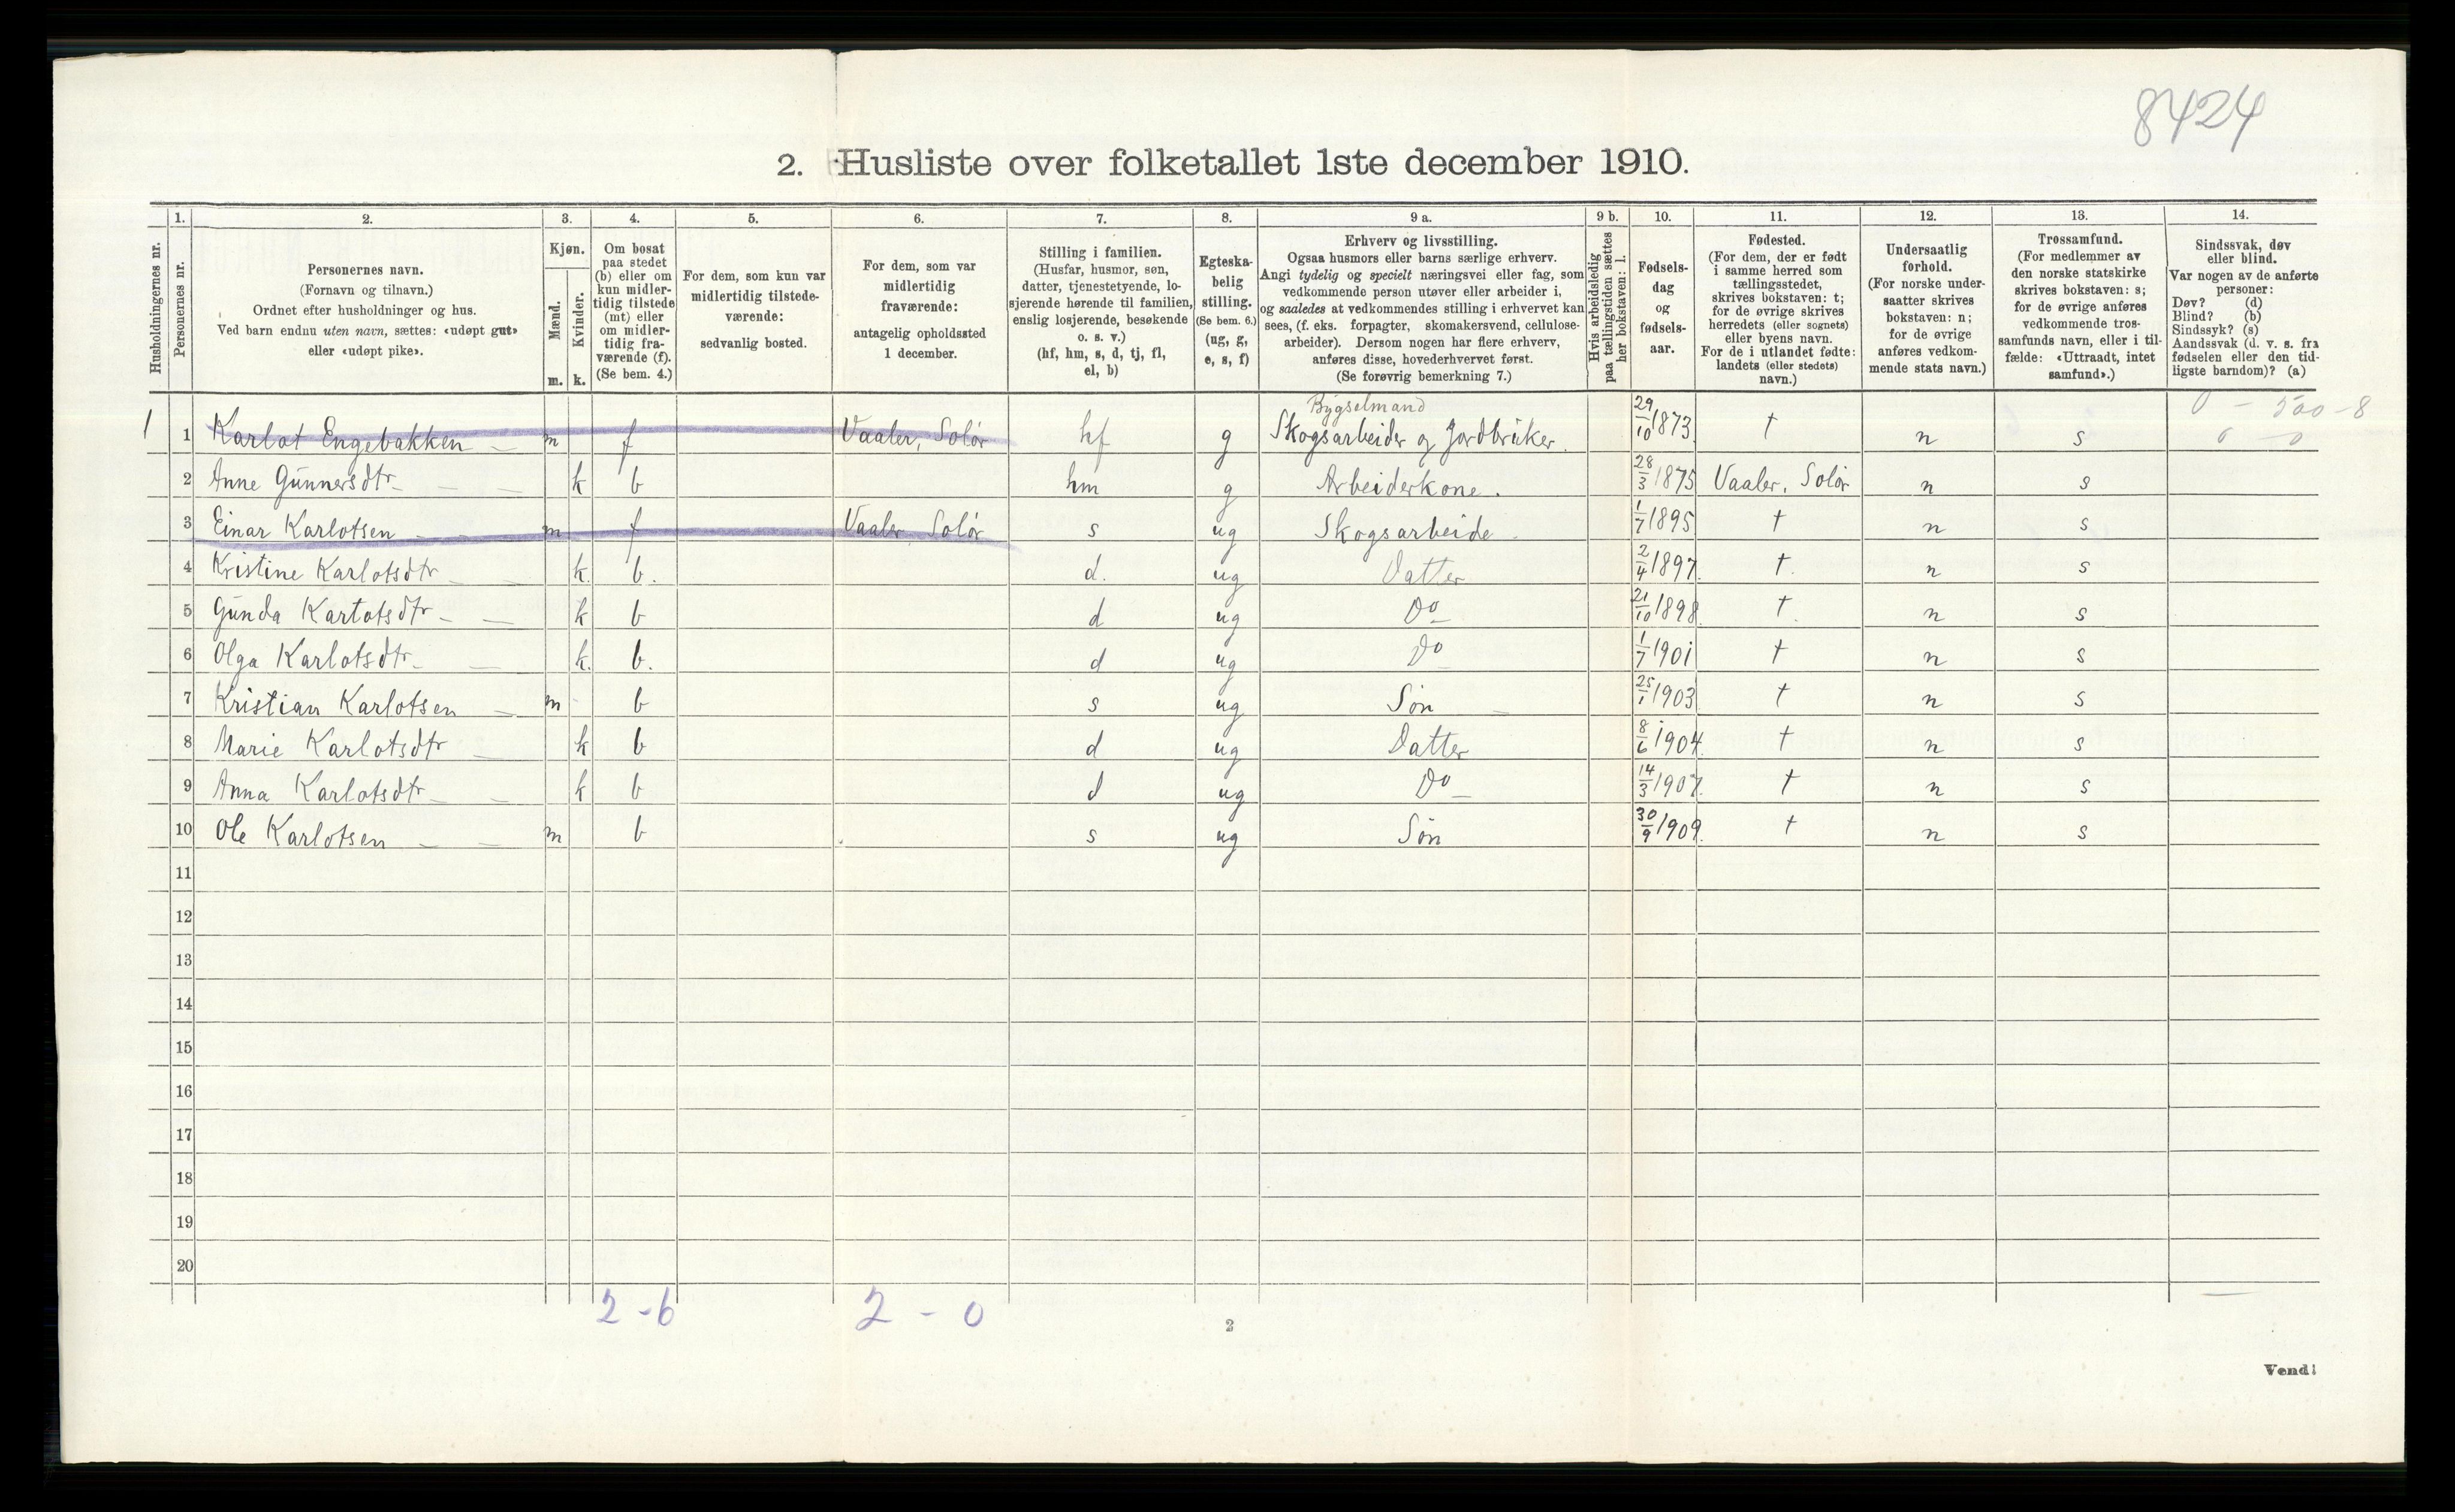 8424
2. Husliste over folketallet 1ste december 1910.
Husholdningernes nr.
1.
Personernes nr.
2.
Personernes navn.
(Fornavn og tilnavn.)
Ordnet efter husholdninger og hus.
Ved barn endnu uten navn, sættes: «udøpt gut»
eller «udøpt pike».
3.
Kjøn.
Mænd.
Kvinder.
m. k.
4.
Om bosat
paa stedet
(b) eller om
kun midler-
tidig tilstede
(mt) eller
om midler-
tidig fra-
værende (f).
(Se bem. 4.)
5.
For dem, som kun var
midlertidig tilstede-
værende:
sedvanlig bosted.
6.
For dem, som var
midlertidig
fraværende:
antagelig opholdssted
1 december.
7.
Stilling i familien.
(Husfar, husmor, søn,
datter, tjenestetyende, lo-
sjerende hørende til familien,
enslig losjerende, besøkende
o. s. v.)
(hf, hm, s, d, tj, fl,
el, b)
8.
Egteska-
belig
stilling.
(Se bem. 6.)
(ug, g,
e, s, f)
9 a.
Erhverv og livsstilling.
Ogsaa husmors eller barns særlige erhverv.
Angi tydelig og specielt næringsvei eller fag, som
vedkommende person utøver eller arbeider i,
og saaledes at vedkommendes stilling i erhvervet kan
sees, (f. eks. forpagter, skomakersvend, cellulose-
arbeider). Dersom nogen har flere erhverv,
anføres disse, hovederhvervet først.
(Se forøvrig bemerkning 7.)
9 b.
Hvis arbeidsledig
paa tællingstiden sættes
her bokstaven: l.
10.
Fødsels-
dag
og
fødsels-
aar.
11.
Fødested.
(For dem, der er født
i samme herred som
tællingsstedet,
skrives bokstaven: t;
for de øvrige skrives
herredets (eller sognets)
eller byens navn.
For de i utlandet fødte:
landets (eller stedets)
navn.)
12.
Undersaatlig
forhold.
(For norske under-
saatter skrives
bokstaven: n;
for de øvrige
anføres vedkom-
mende stats navn.)
13.
Trossamfund.
(For medlemmer av
den norske statskirke
skrives bokstaven: s;
for de øvrige anføres
vedkommende tros-
samfunds navn, eller i til-
fælde: «Uttraadt, intet
samfund».)
14.
Sindssvak, døv
eller blind.
Var nogen av de anførte
personer:
Døv? (d)
Blind? (b)
Sindssyk? (s)
Aandssvak (d. v. s. fra
fødselen eller den tid-
ligste barndom)? (a)
Bygselmand 0 - 500 - 8
1 1 Karlot Engebakken m f Vaaler, Solør hf g Skogsarbeider og Jordbruker. 29/10 1873 t n s 0 - 0
2 Anne Gunnersdtr k b hm g Arbeiderkone. 28/3 1875 Vaaler, Solør n s
3 Einar Karlotsen m f Vaaler Solør s ug Skogsarbeide 1/7 1895 t n s
4 Kristine Karlotsdtr k. b. d. ug Datter 2/4 1897. t. n s
5 Gunda Karlotsdtr k b d ug Do 21/10 1898. t. n s
6 Olga Karlotsdtr k. b. d ug Do 1/7 1901 t n s
7 Kristian Karlotsen m b s ug Søn 25/1 1903 t n s
8 Marie Karlotsdtr k b d ug Datter 8/6 1904. t n s
9 Anna Karlotsdtr k b d ug Do 14/3 1907. t n s
10 Ole Karlotsen m b s ug Søn 30/9 1909. t n s
11
12
13
14
15
16
17
18
19
20
2 - 6 2 - 0
2
Vend!